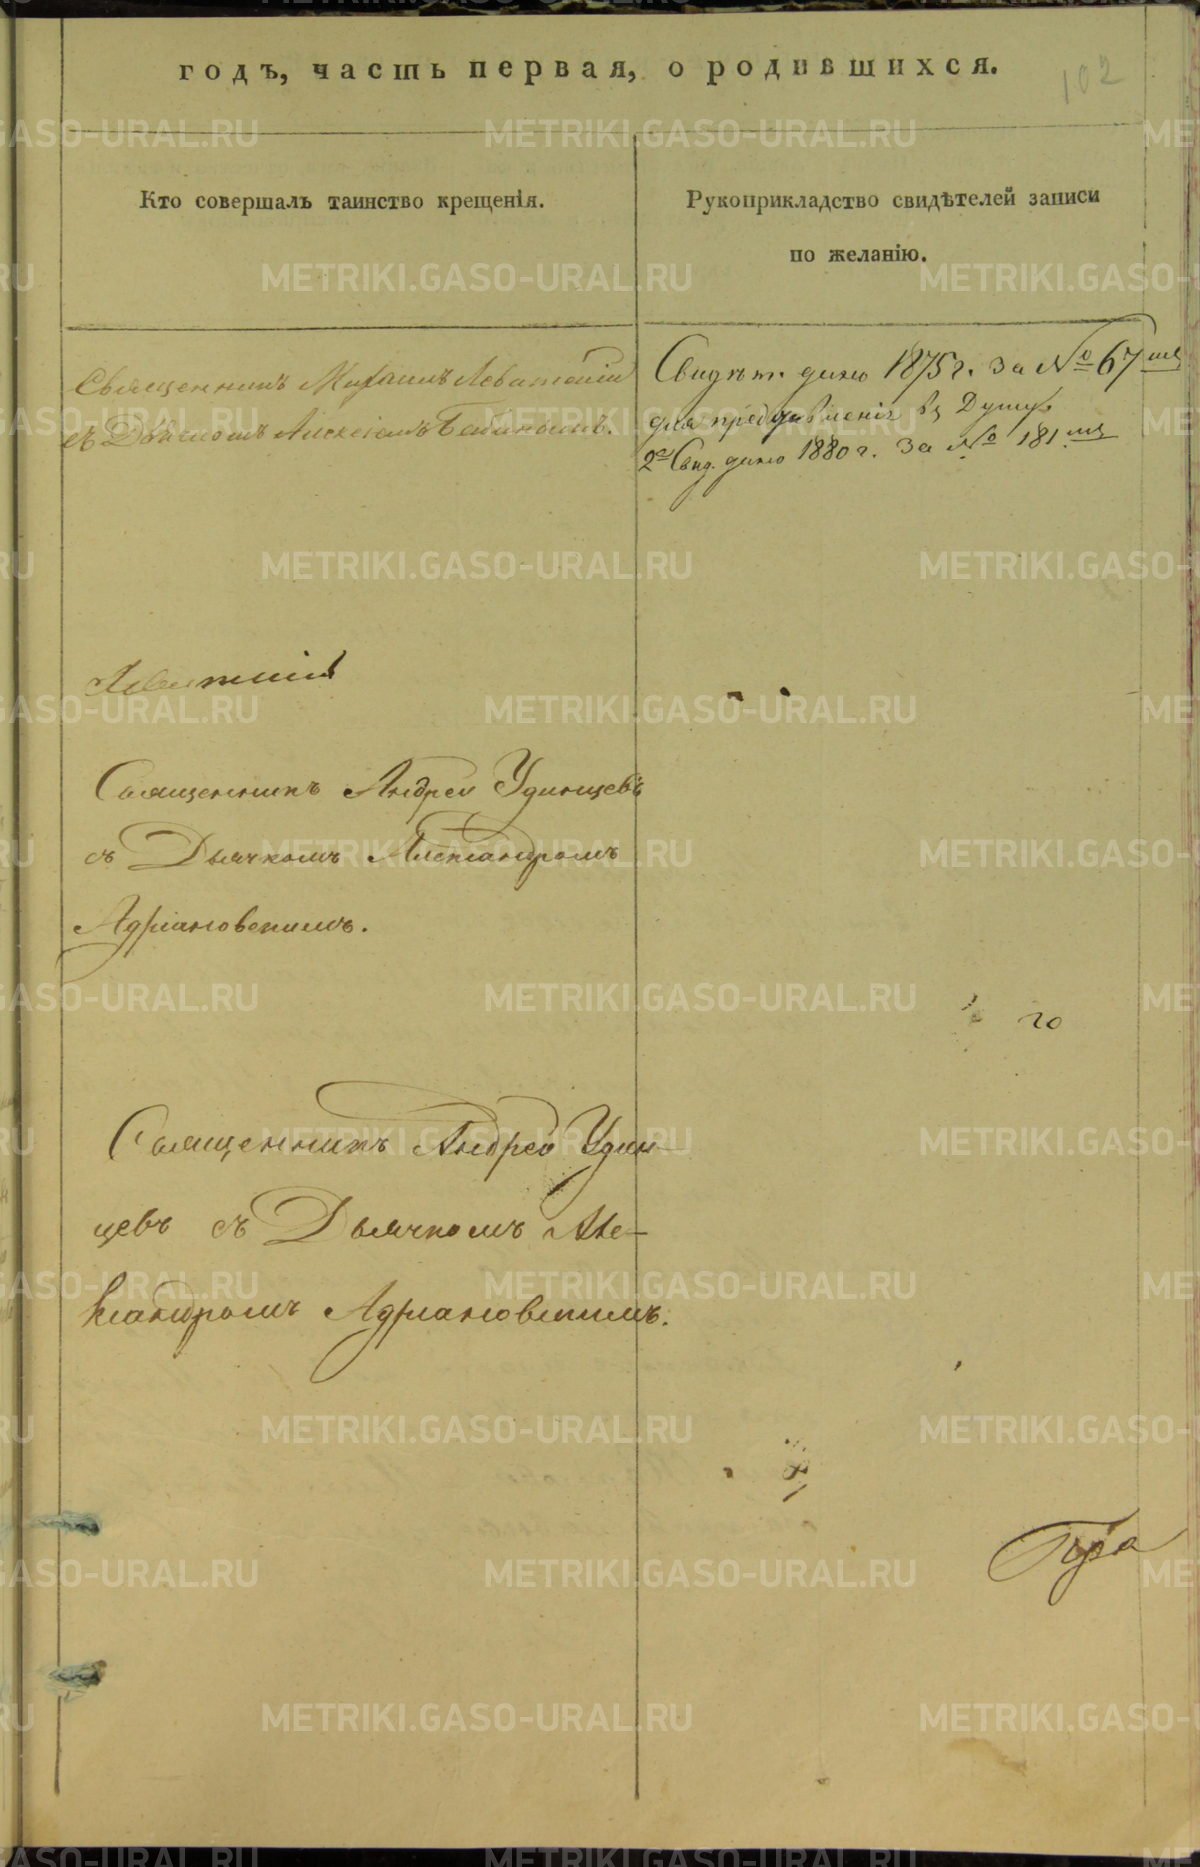 годъ, часть первая, о родившихся.
102
Кто совершалъ таинство крещенія.
Рукоприкладство свидѣтелей записи
по желанію.
Священникъ Михаилъ Левитскій
съ Дьячкомъ Алексіемъ Бабиновымъ.
Свидѣт. дано 1875 г. за № 67мъ
для представленія въ Духу
2е Свид. дано 1880 г. за № 181мъ
Левитскій
Священникъ Андрей Удинцевъ
съ Дьячкомъ Александромъ
Адріановскимъ.
Священникъ Андрей Удин-
цевъ съ Дьячкомъ Але-
ксандромъ Адріановскимъ.
го
METRIKI.GASO-URAL.RU